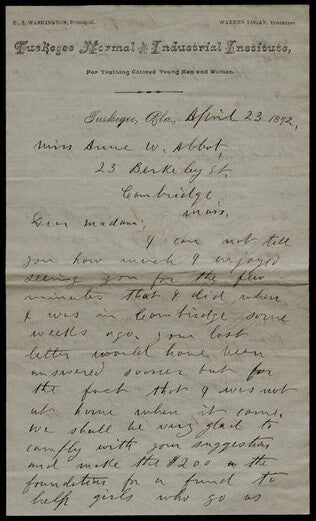 B. T. WASHINGTON, Principal. WARREN LOGAN, Treasurer.
Tuskegee Normal & Industrial Institute,
For Training Colored Young Men and Women.
Tuskegee, Ala., April 23 1892.
Miss Anne W. Abbot,
23 Berkeley St.
Cambridge
Mass.
Dear Madam:
I can not tell
you how much I enjoyed
seeing you for the few
minutes that I did when
I was in Cambridge some
weeks ago. Your last
letter would have been
answered sooner but for
the fact that I was not
at home when it came.
We shall be very glad to
comply with your suggestion
and make the $200 the
foundation for a fund to
help girls who go as